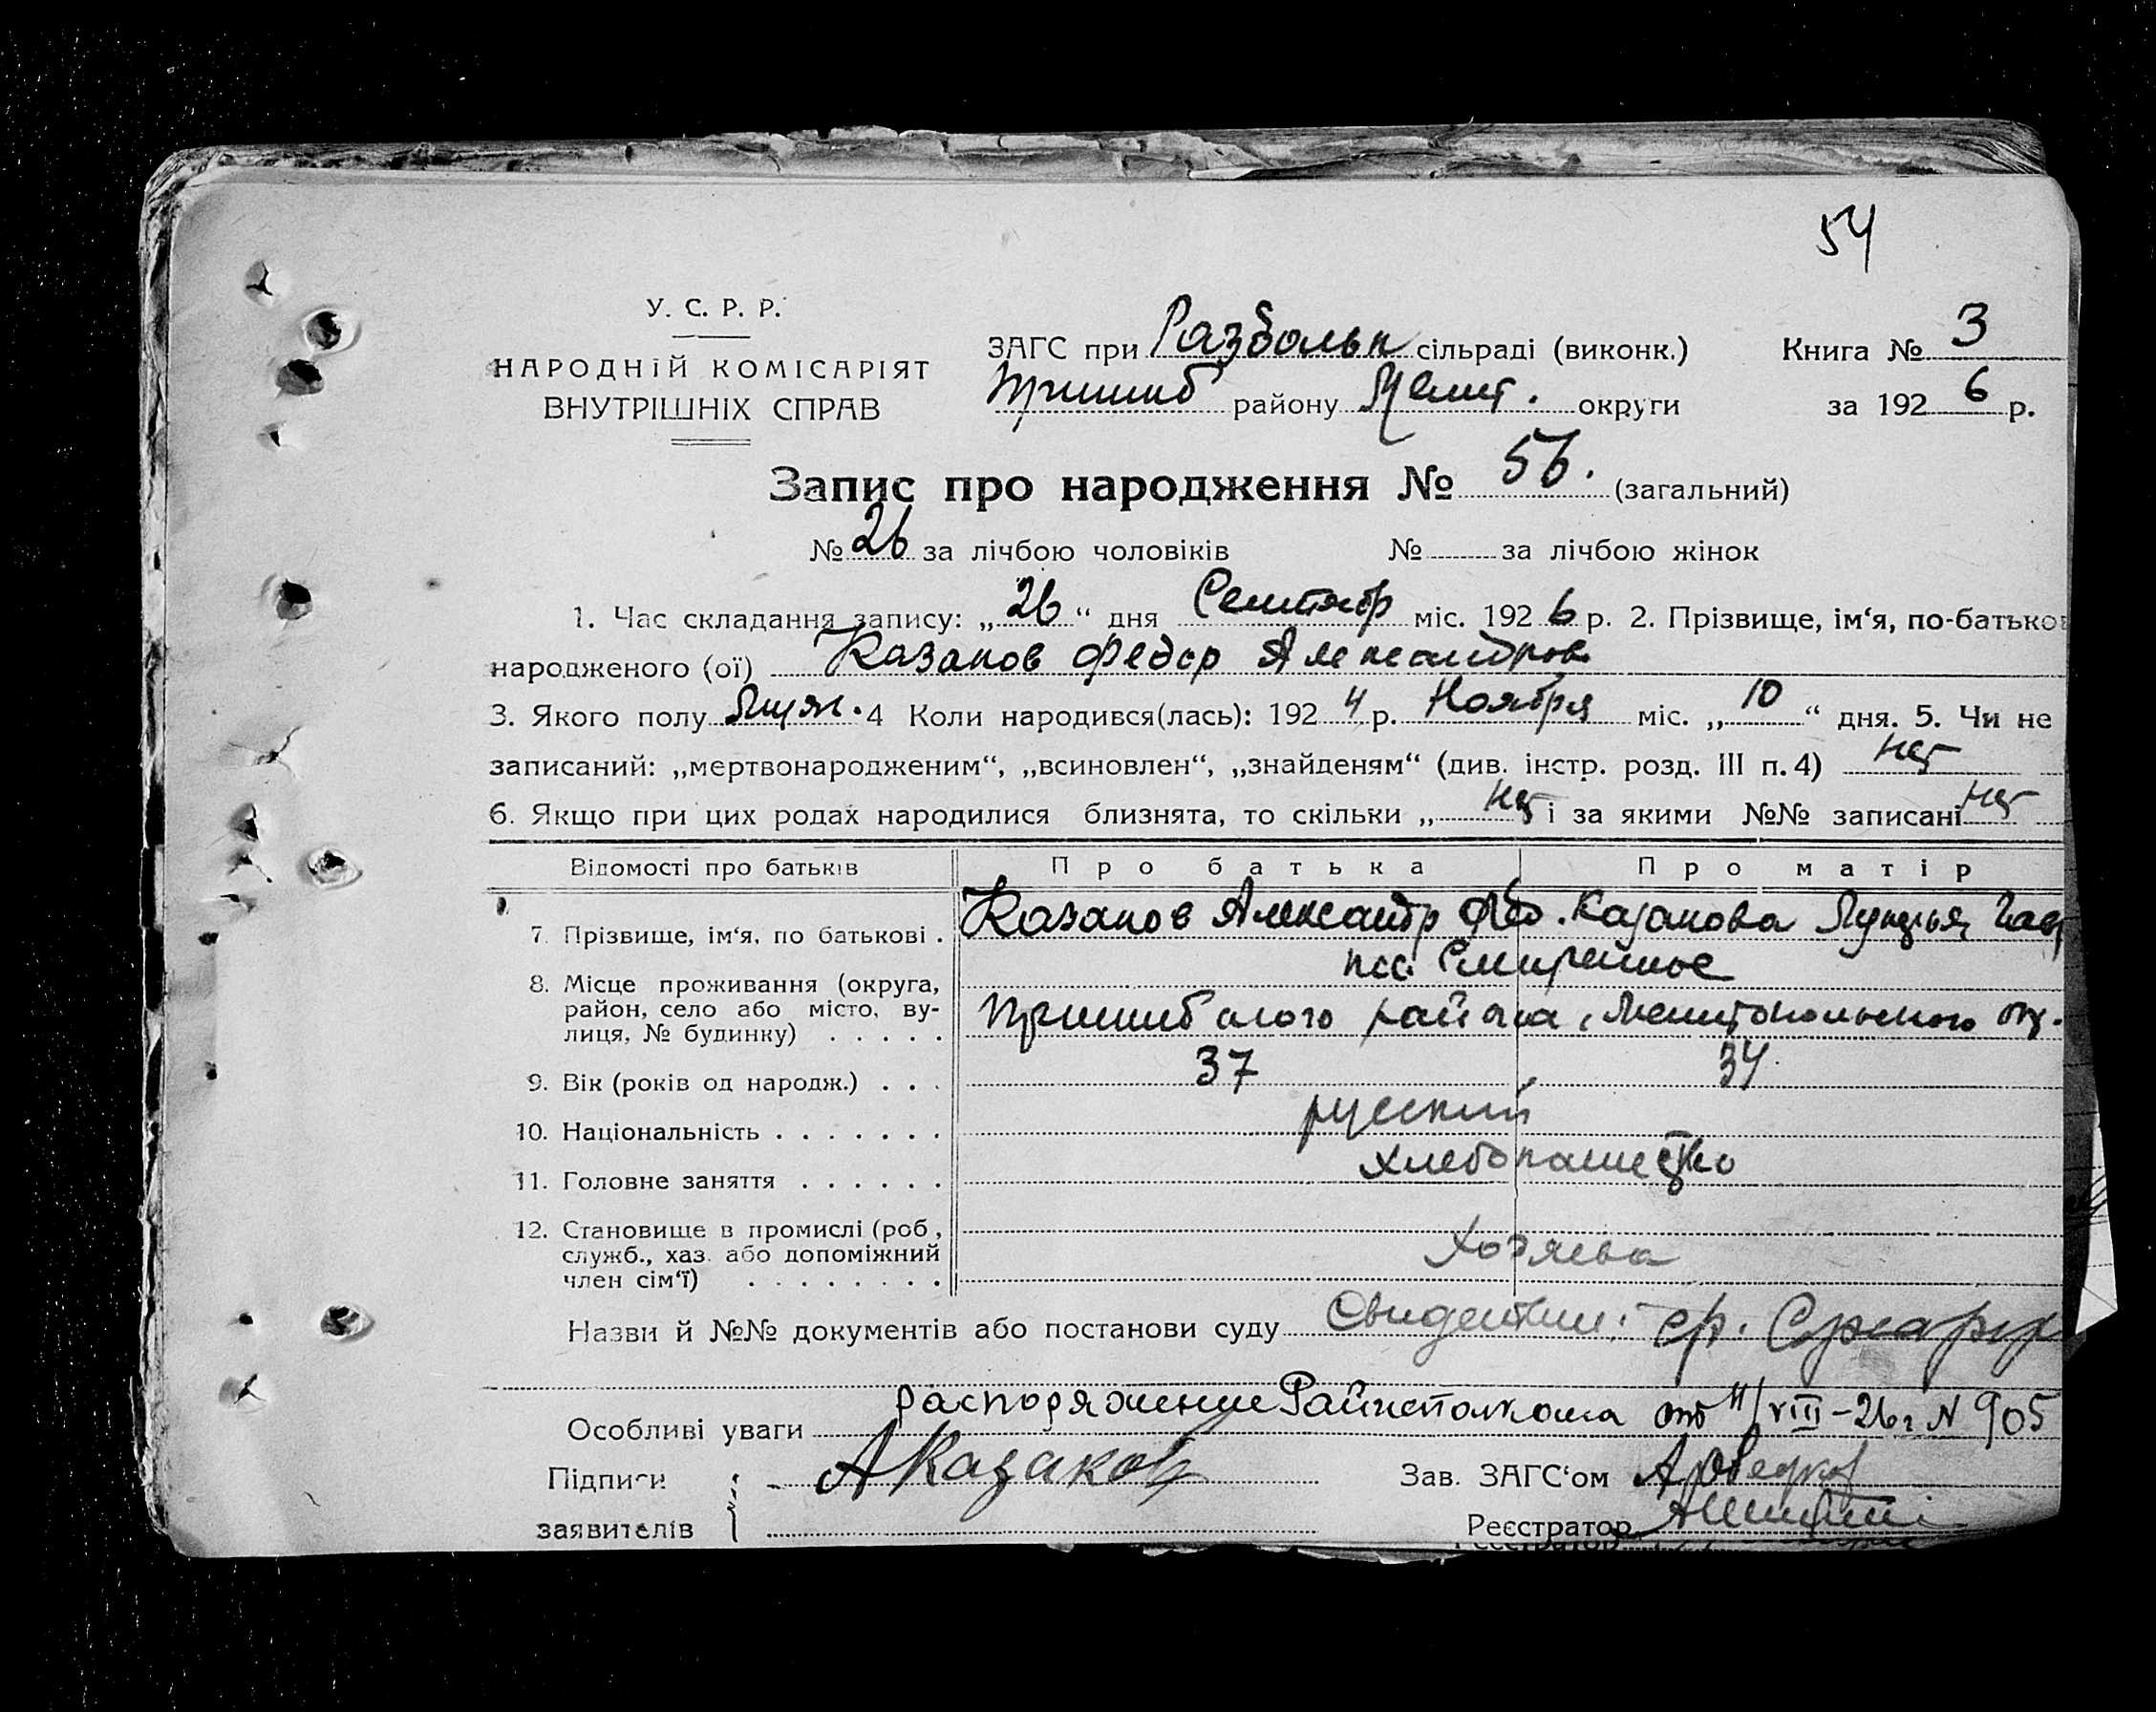 54
У. С. Р. Р.
НАРОДНІЙ КОМІСАРІЯТ
ВНУТРІШНІХ СПРАВ
ЗАГС при Раздольн сільраді (виконк.) Книга № 3
Пришиб району Мелит. округи за 1926 р.
Запис про народження № 56. (загальний)
№ 26 за лічбою чоловіків № за лічбою жінок
1. Час складання запису: „26“ дня Сентябр міс. 1926 р. 2. Прізвище, ім‘я, по-батькові
народженого (ої) Казаков Федор Александров
3. Якого полу Муж. 4 Коли народився(лась): 1924 р. Ноября міс. „10“ дня. 5. Чи не
записаний: „мертвонародженим“, „всиновлен“, „знайденям“ (див. інстр. розд. III п. 4) нет
6. Якщо при цих родах народилися близнята, то скільки „ нет і за якими №№ записані нет
Відомості про батьків Про батька Про матір
7. Прізвище, ім‘я, по батькові . Казаков Александр Фед. Казакова Лукерья Гав
8. Місце проживання (округа, район, село або місто, вулиця, № будинку) . . . . . пос. Смиренное
Пришибского района, Мелитопольского ок.
9. Вік (років од народж.) . . . 37 34
10. Національність . . . . . . . русский
11. Головне заняття . . . . . . хлебопашество
12. Становище в промислі (роб., служб., хаз. або допоміжний член сім‘ї) . . . . . . . . хозяева
Назви й №№ документів або постанови суду Свидетели: гр.
Особливі уваги распоряжение Райисполкома от 11/VIII-26 г N 905
Підписи АКазаков Зав. ЗАГС‘ом
заявителів Реєстратор
Реєстратор